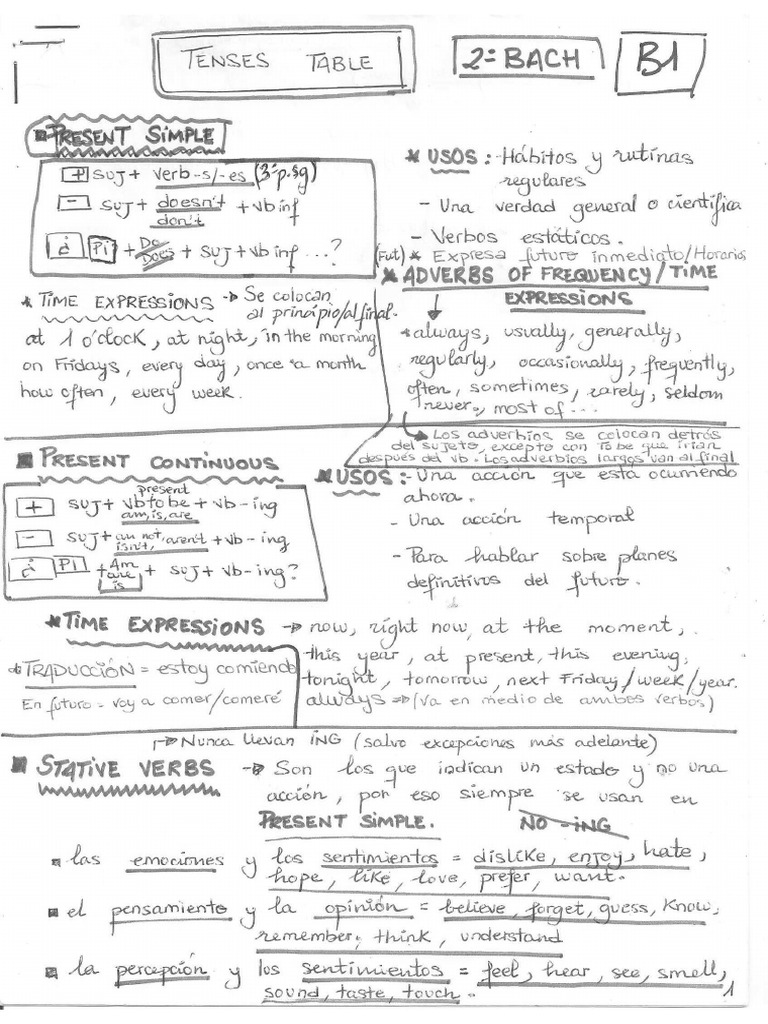 TENSES TABLE
2º BACH
B1
PRESENT SIMPLE
+ SUJ + verb-s/-es (3ª p.sg)
- SUJ + doesn't + vb inf
don't
¿ Pi + Do + SUJ + vb inf ...?
Does
* TIME EXPRESSIONS → Se colocan
al principio/al final.
at 1 o'clock, at night, in the morning
on Fridays, every day, once a month
how often, every week.
* USOS: - Hábitos y rutinas
regulares
- Una verdad general o científica
- Verbos estáticos.
(Fut) * Expresa futuro inmediato/Horarios
* ADVERBS OF FREQUENCY/TIME
EXPRESSIONS
* always, usually, generally,
regularly, occasionally, frequently,
often, sometimes, rarely, seldom
never, most of ...
→ Los adverbios se colocan detrás
del sujeto, excepto con To be que irían
después del vb. Los adverbios largos van al final
PRESENT CONTINUOUS
present
+ SUJ + vb to be + vb-ing
am, is, are
- SUJ + am not, aren't + vb-ing
isn't,
¿ Pi + Am + SUJ + vb-ing?
are
is
USOS: - Una acción que está ocurriendo
ahora.
- Una acción temporal
- Para hablar sobre planes
definitivos del futuro.
* TIME EXPRESSIONS → now, right now, at the moment,
this year, at present, this evening,
tonight, tomorrow, next Friday/week/year.
always ⇒ (va en medio de ambos verbos)
* TRADUCCIÓN = estoy comiendo
En futuro = voy a comer/comeré
→ Nunca llevan ING (salvo excepciones más adelante)
STATIVE VERBS → Son los que indican un estado y no una
acción, por eso siempre se usan en
PRESENT SIMPLE. NO -ING
las emociones y los sentimientos = dislike, enjoy, hate,
hope, like, love, prefer, want.
el pensamiento y la opinión = believe, forget, guess, know,
remember, think, understand
la percepción y los sentimientos = feel, hear, see, smell,
sound, taste, touch.
1